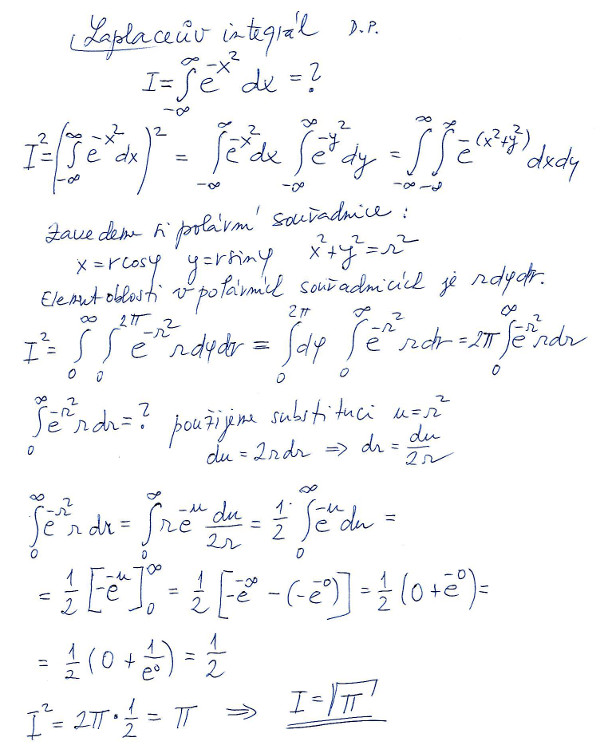 Laplaceův integrál D.P.
I = ∫_{-∞}^{∞} e^{-x²} dx = ?
I² = (∫_{-∞}^{∞} e^{-x²} dx)² = ∫_{-∞}^{∞} e^{-x²} dx ∫_{-∞}^{∞} e^{-y²} dy = ∫_{-∞}^{∞} ∫_{-∞}^{∞} e^{-(x²+y²)} dxdy
Zavedeme si polární souřadnice:
x = r cosφ y = r sinφ x² + y² = r²
Element oblasti v polárních souřadnicích je r dφ dr.
I² = ∫_{0}^{∞} ∫_{0}^{2π} e^{-r²} r dφ dr = ∫_{0}^{2π} dφ ∫_{0}^{∞} e^{-r²} r dr = 2π ∫_{0}^{∞} e^{-r²} r dr
∫_{0}^{∞} e^{-r²} r dr = ? použijeme substituci u = r²
du = 2r dr ⇒ dr = du/2r
∫_{0}^{∞} e^{-r²} r dr = ∫_{0}^{∞} r e^{-u} du/2r = 1/2 ∫_{0}^{∞} e^{-u} du =
= 1/2 [-e^{-u}]_{0}^{∞} = 1/2 [-e^{-∞} - (-e^{-0})] = 1/2 (0 + e^{-0}) =
= 1/2 (0 + 1/e⁰) = 1/2
I² = 2π · 1/2 = π ⇒ I = √π